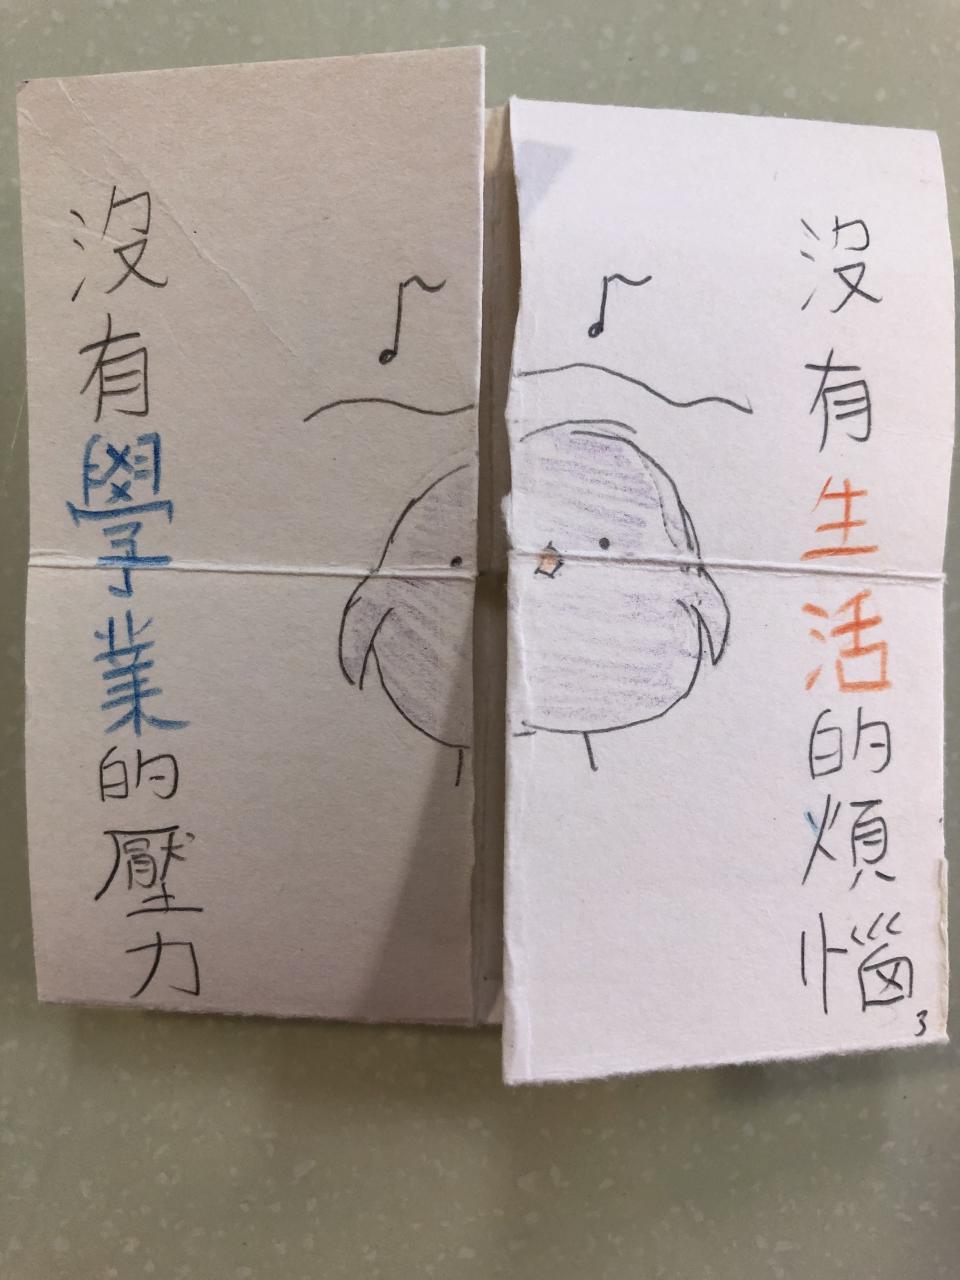 沒有生活的煩惱
3
沒有學業的壓力